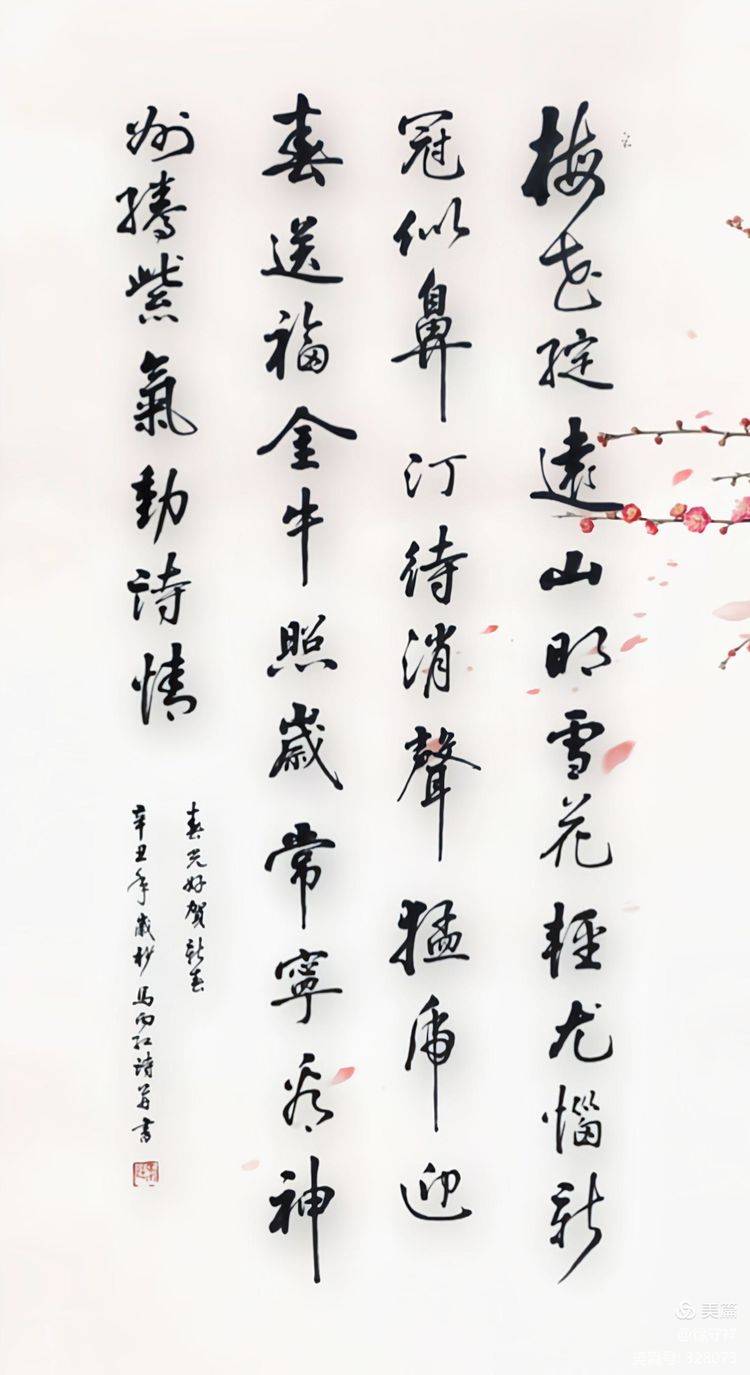 梅花綻遠山明雪花輕尤惱新
冠似鼻汀待消聲猛虎迎
春送福金牛照歲常寧看神
州騰紫氣動詩情
春光好賀新春
辛丑年歲杪馬紅詩並書
美篇
美篇号: 328073